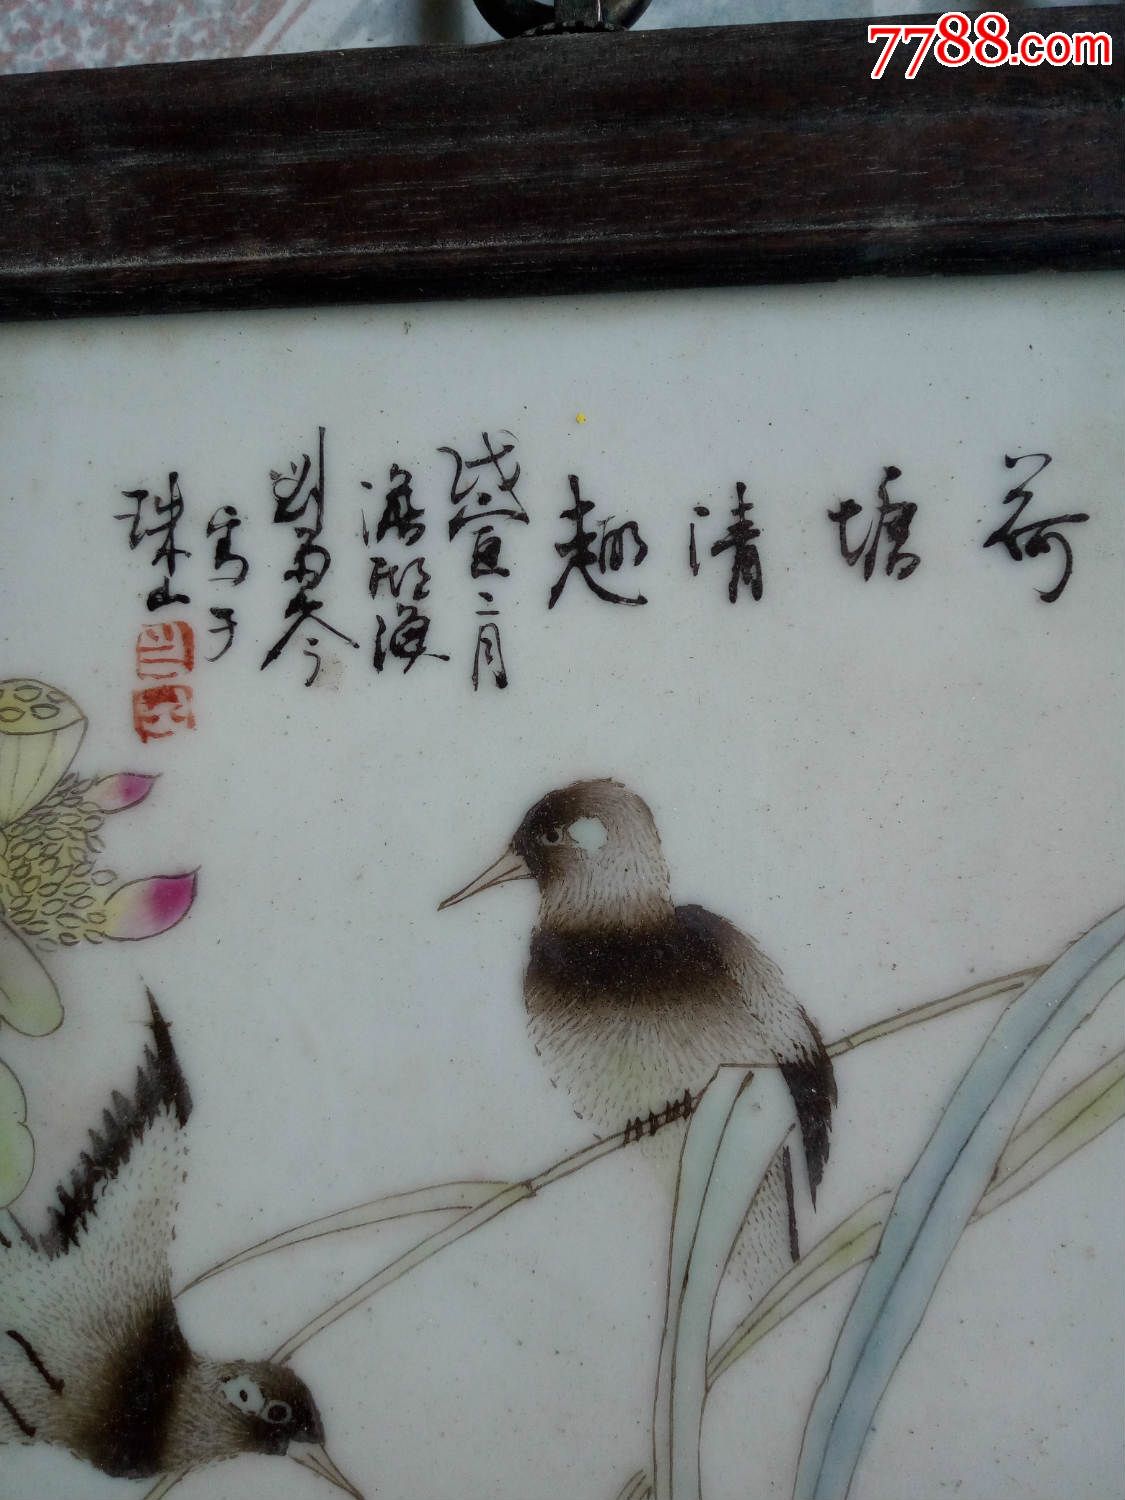 7788.com
荷塘清趣
戊寅二月
澹湖漁
劉雨岑
寫于
珠山